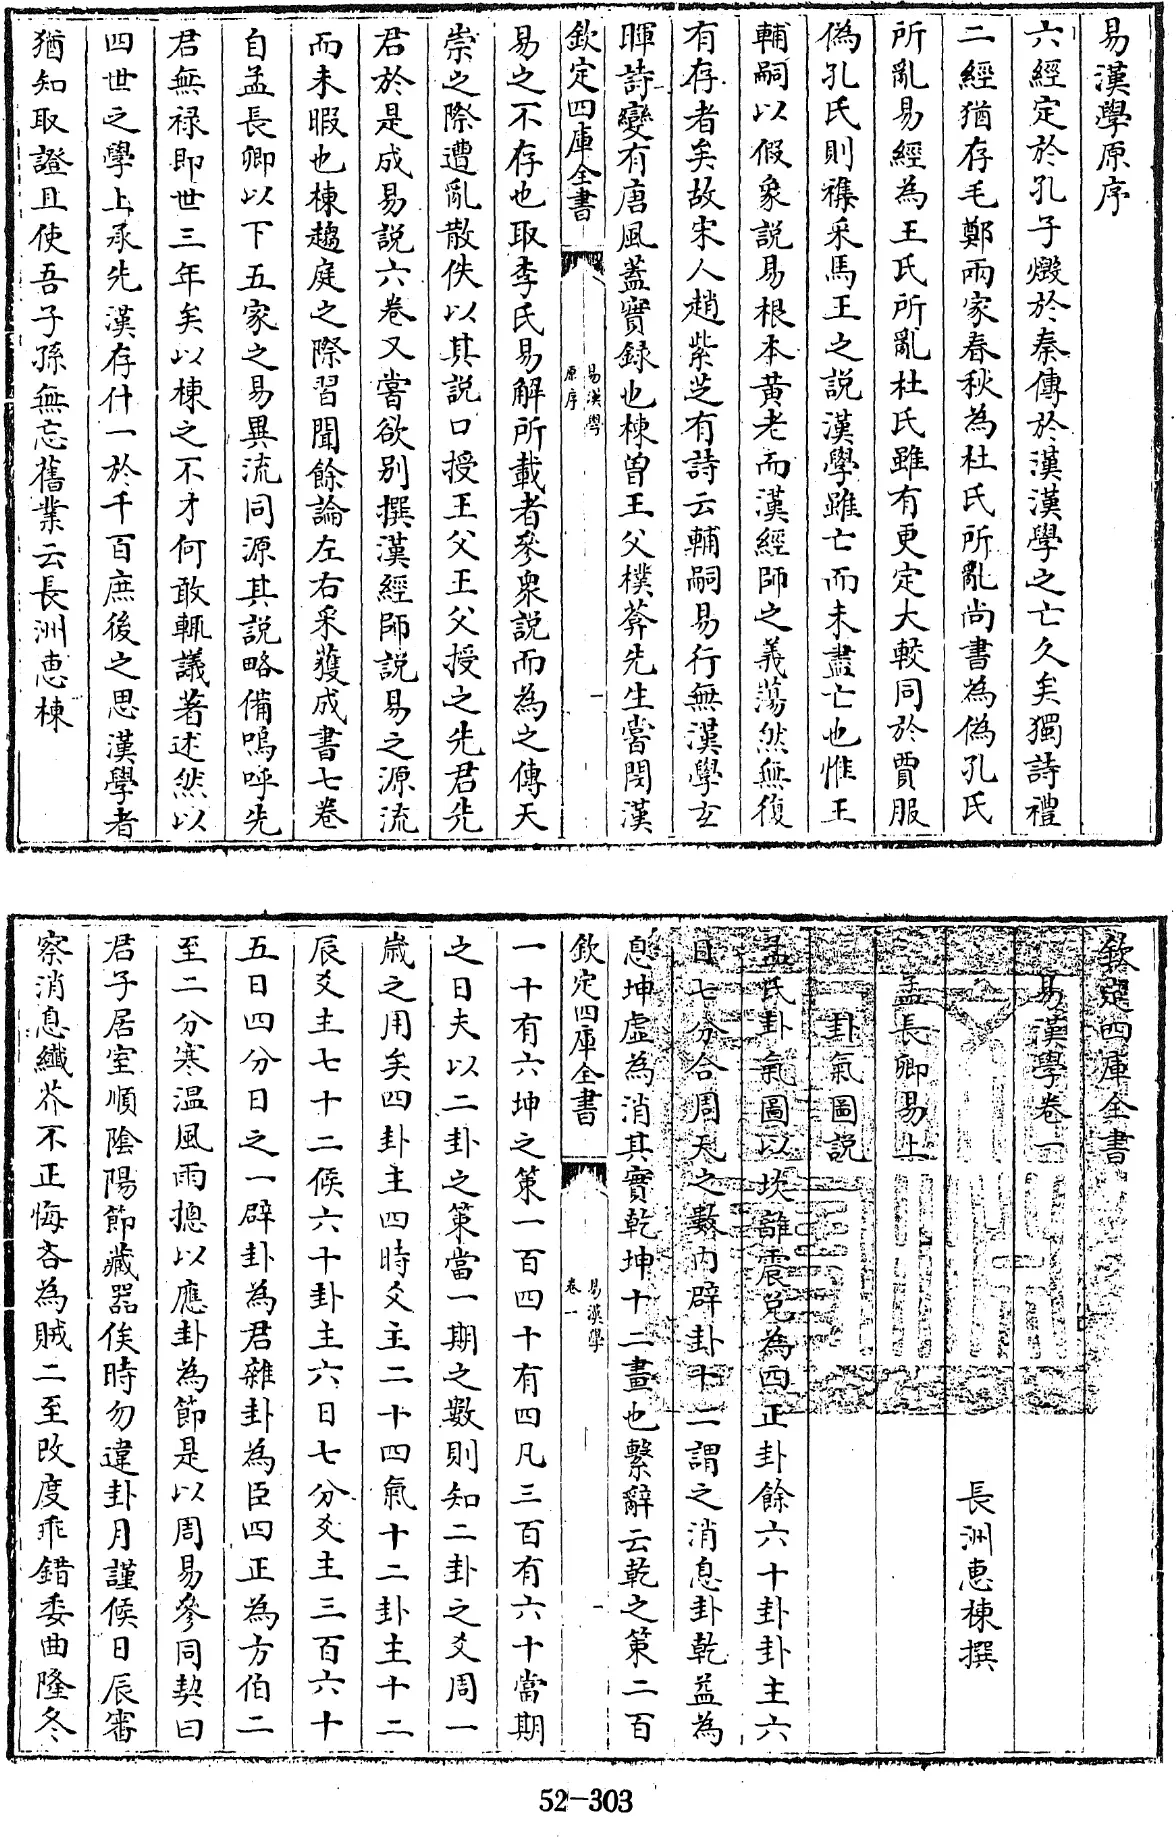 易漢學原序
六經定於孔子燬於秦傳於漢漢學之亡久矣獨詩禮
二經猶存毛鄭兩家春秋為杜氏所亂尚書為偽孔氏
所亂易經為王氏所亂杜氏雖有更定大較同於賈服
偽孔氏則襍采馬王之説漢學雖亡而未盡亡也惟王
輔嗣以假象説易根本黃老而漢經師之義蕩然無復
有存者矣故宋人趙紫芝有詩云輔嗣易行無漢學玄
暉詩變有唐風蓋實録也棟曾王父樸菴先生嘗閔漢
欽定四庫全書
易漢學
原序
一
易之不存也取李氏易解所載者參衆説而為之傳天
崇之際遭亂散佚以其説口授王父王父授之先君先
君於是成易説六卷又嘗欲别撰漢經師説易之源流
而未暇也棟趨庭之際習聞餘論左右采獲成書七卷
自孟長卿以下五家之易異流同源其説略備嗚呼先
君無禄即世三年矣以棟之不才何敢輒議著述然以
四世之學上承先漢存什一於千百庶後之思漢學者
猶知取證且使吾子孫無忘舊業云長洲惠棟
欽定四庫全書
易漢學卷一
長洲惠棟撰
孟長卿易上
卦氣圖説
孟氏卦氣圖以坎離震兌為四正卦餘六十卦卦主六
日七分合周天之數内辟卦十二謂之消息卦乾盈為
息坤虛為消其實乾坤十二畫也繫辭云乾之策二百
欽定四庫全書
易漢學
卷一
一
一十有六坤之策一百四十有四凡三百有六十當期
之日夫以二卦之策當一期之數則知二卦之爻周一
歲之用矣四卦主四時爻主二十四氣十二卦主十二
辰爻主七十二候六十卦主六日七分爻主三百六十
五日四分日之一辟卦為君雜卦為臣四正為方伯二
至二分寒温風雨摠以應卦為節是以周易參同契曰
君子居室順陰陽節藏器俟時勿違卦月謹候日辰審
察消息纖芥不正悔吝為賊二至改度乖錯委曲隆冬
52-303